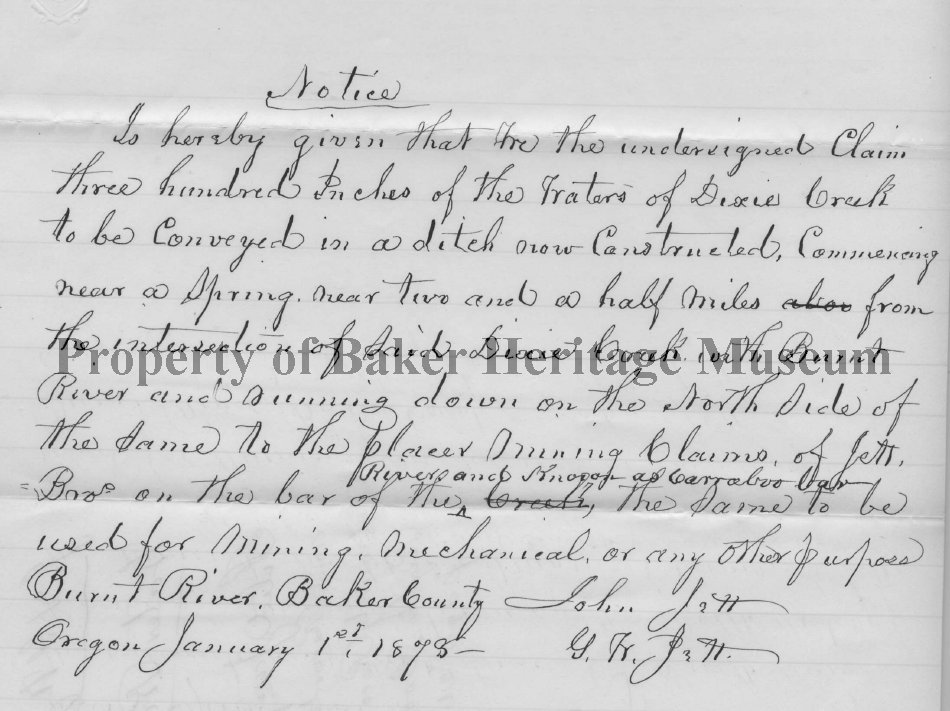 Notice
Is hereby given that We the undersigned Claim
three hundred Inches of the Waters of Dixie Creek
to be Conveyed in a ditch now Constructed, Commencing
near a Spring. near two and a half Miles abov from
the intersection of Said Dixie Creek with Burnt
Property of Baker Heritage Museum
River and running down on the North Side of
the Same to the placer Mining Claims, of Jett.
River and Known as Carraboo bar
Bros on the bar of the Creek, the Same to be
used for Mining, Mechanical, or any other purpose
Burnt River, Baker County John Jett
Oregon January 1st, 1878 G. W. Jett.